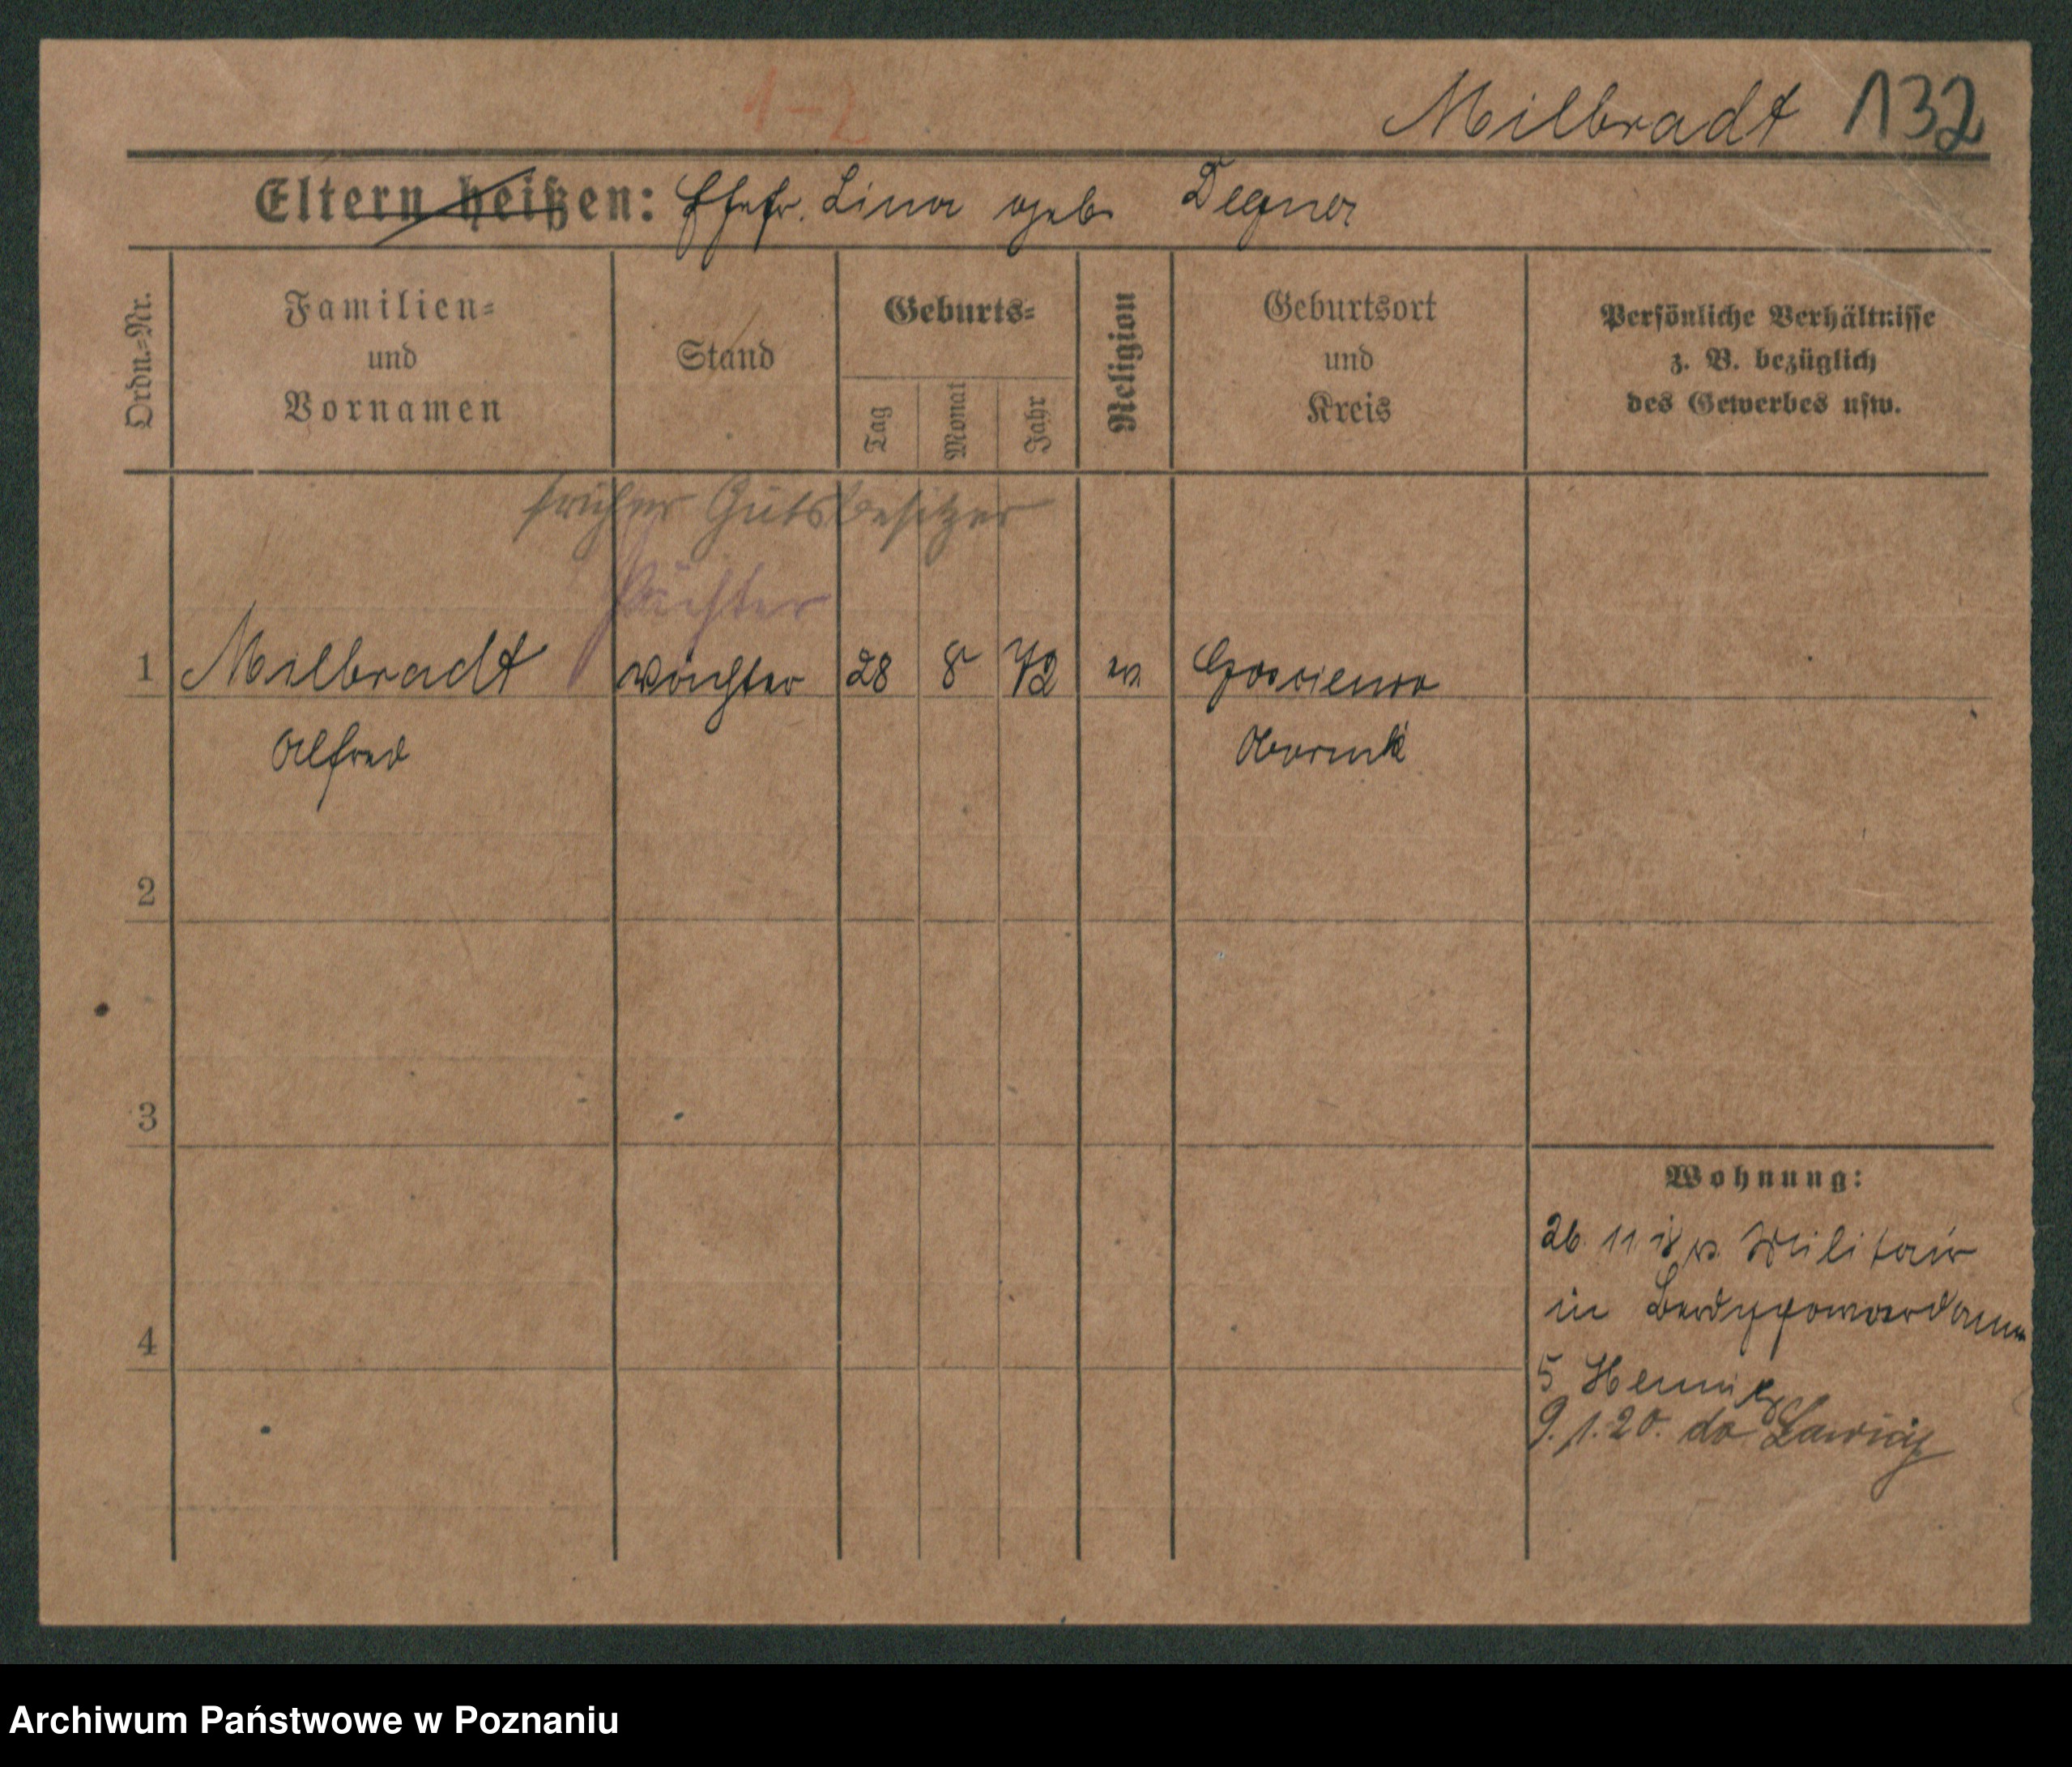 1-2
Milbradt 132
Eltern heißen: Ehefr. Lina geb. Degner
Ordn.=Nr.
Familien=
und
Vornamen
Stand
Geburts=
Tag
Monat
Jahr
Religion
Geburtsort
und
Kreis
Persönliche Verhältnisse
z. B. bezüglich
des Gewerbes usw.
früher Gutsbesitzer
Pächter
1 Milbradt Wächter 28 8 72 ev.
Alfred Obornik
2
3
4
Wohnung:
26 11 18 v. Militair
in
5
9.1.20. do Ławicy
Archiwum Państwowe w Poznaniu